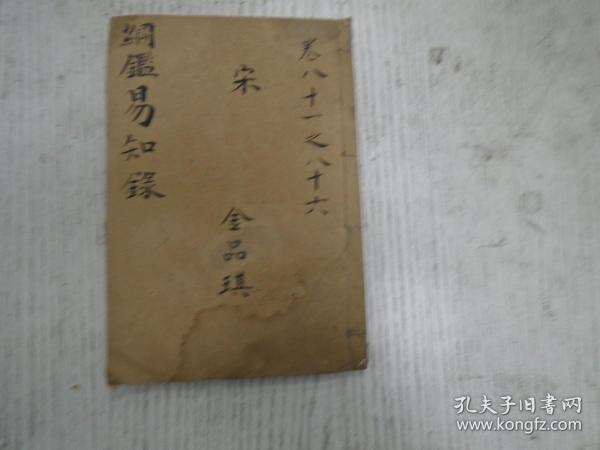 綱鑑易知錄
宋
金品琪
卷八十一之八十六
孔夫子旧书网
www.kongfz.com